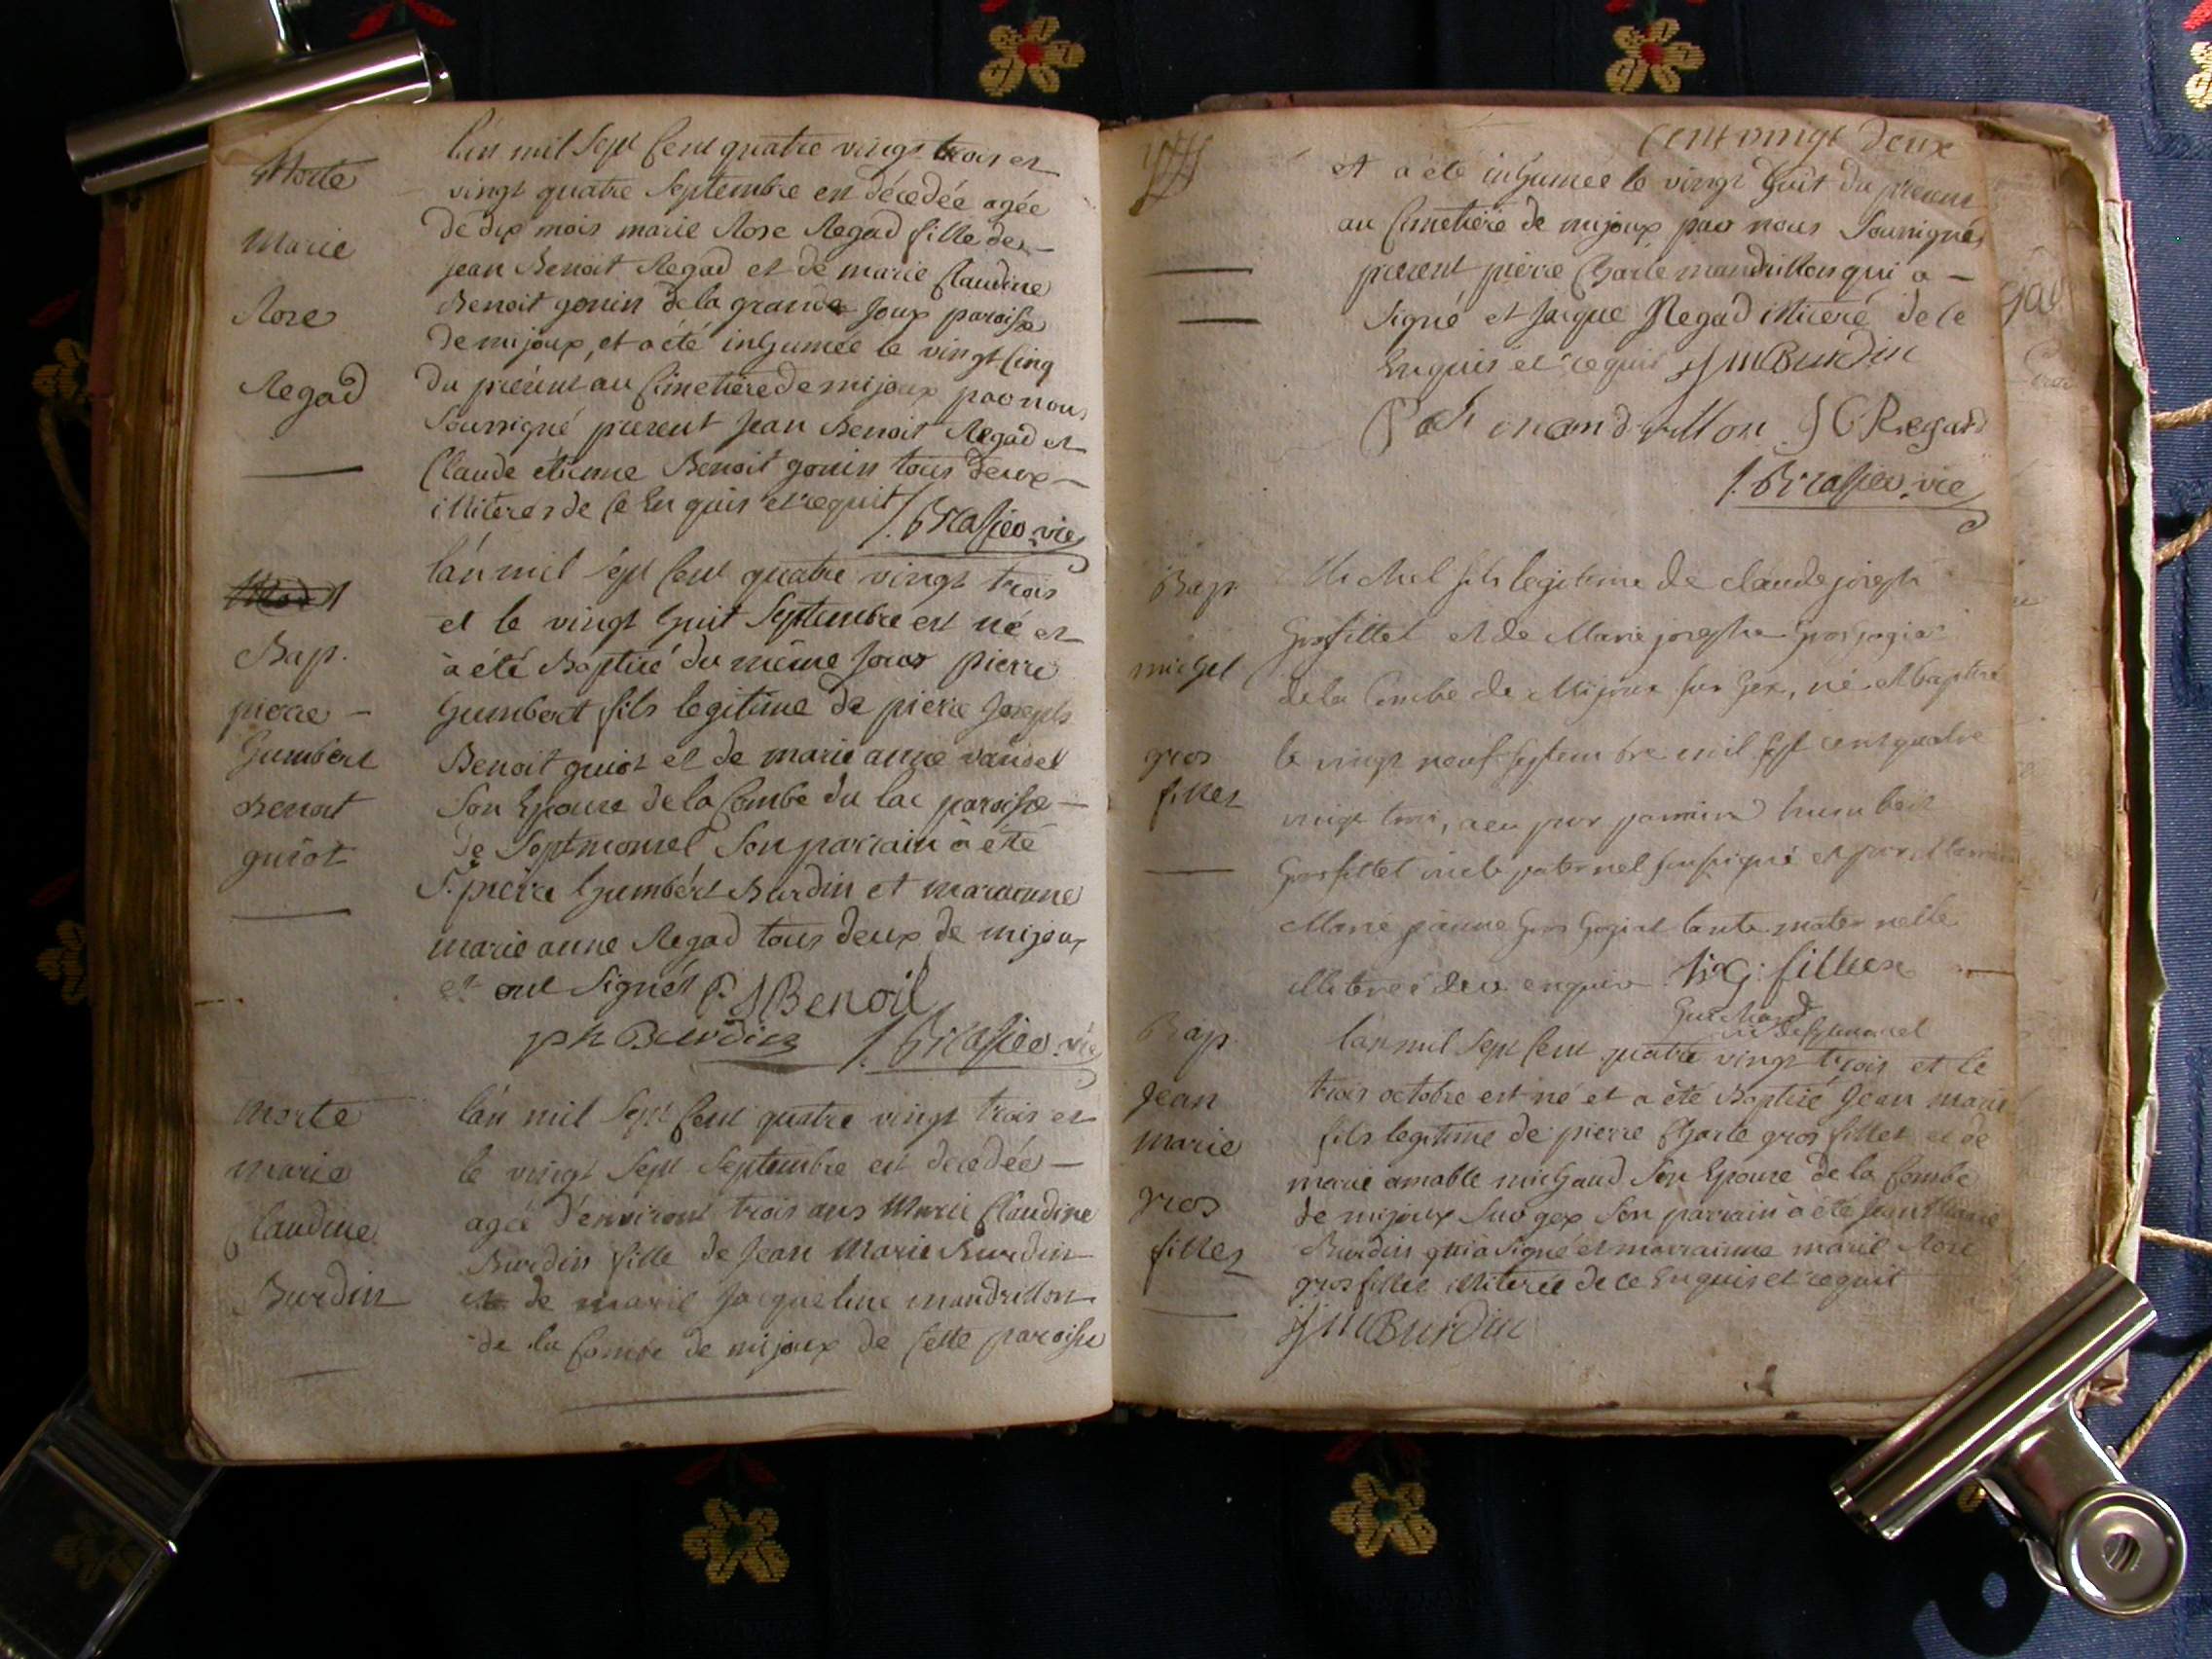 Morte
Marie
Rose
Regad
l'an mil Sept Cent quatre vingt trois et
vingt quatre Septembre est décédée agée
de dix mois marie Rose Regad fille de
jean Benoit Regad et de marie Claudine
Benoit gonin de la grande Joux paroisse
de mijoux, et a été inhumée le vingt Cinq
du présent au Cimetiere de mijoux par nous
Soussigné present Jean Benoit Regad et
Claude étienne Benoit gonin tous deux
illiteres de Ce Enquis et requit
vic
Bap.
pierre
humbert
Benoit
guiot
l'an mil sept Cent quatre vingt trois
et le vingt huit Septembre est né et
à été Baptisé du même Jour pierre
humbert fils legitime de pierre Joseph
Benoit guiot et de marie anne vandel
Son Epouse de la Combe du lac paroisse
de Septmoncel Son parrain à été
Sr. pierre humbert Burdin et maraine
marie anne Regad tous deux de mijoux
et ont Signés P J Benoit
ph Burdin vic
Morte
marie
Claudine
Burdin
l'an mil Sept Cent quatre vingt trois et
le vingt Sept Septembre est décédée
agée d'environt trois ans Marie Claudine
Burdin fille de Jean Marie Burdin
de marie Jacqueline mandrillon
de la Combe de mijoux de Cette paroisse
Cent vingt Deux
et a été inhumée le vingt huit du présent
au Cimetiere de mijoux par nous Soussignés
present pierre Charle mandrillon qui a
Signé et Jacque Regad illiteré de Ce
Enquis et requis J M Burdin
mandrillon J C Regard
vic
Bap.
michel
gros
fillet
Michel fils legitime de claude joseph
Grosfillet et de Marie josephe
de la Combe de Mijoux sur Gex, né et baptisé
le vingt neuf septembre mil sept cent quatre
vingt trois, a eu pour parrain humbert
Grosfillet oncle paternel soussigné et pour Marraine
Marie jeanne tante maternelle
illiterée de ce enquise
vic de Septmoncel
Bap.
Jean
Marie
gros
fillet
l'an mil Sept Cent quatre vingt trois et le
trois octobre est né et a été Baptisé Jean marie
fils legitime de pierre Charle gros fillet et de
marie amable michaud Son Epouse de la Combe
de mijoux Sur gex Son parrain à été Jean Marie
Burdin qui a Signé et marrainne marie Rose
gros fillet illiterée de ce Enquis et requit
J M Burdin